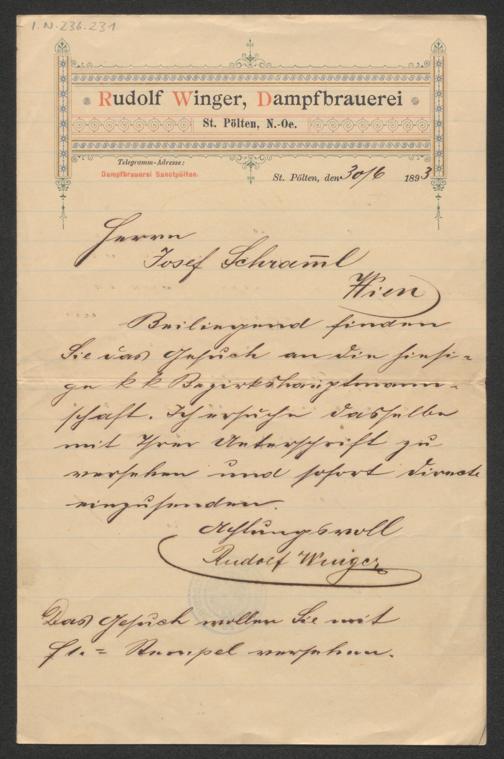 I.N. 236.231
Rudolf Winger, Dampfbrauerei
St. Pölten, N.-Oe.
Telegramm-Adresse:
Dampfbrauerei Sanctpölten.
St. Pölten, den 30/6 1893
Herrn
Josef Schram̅l
Wien
Beiliegend finden
Sie das Gesuch an die hiesi-
ge k k Bezirkshauptmann-
schaft. Ich ersuche dasselbe
mit Ihrer Unterschrift zu
versehen und sofort directe
einzusenden.
Achtungsvoll
Rudolf Winger
Das Gesuch wollen Sie mit
f 1.= Stempel versehen.